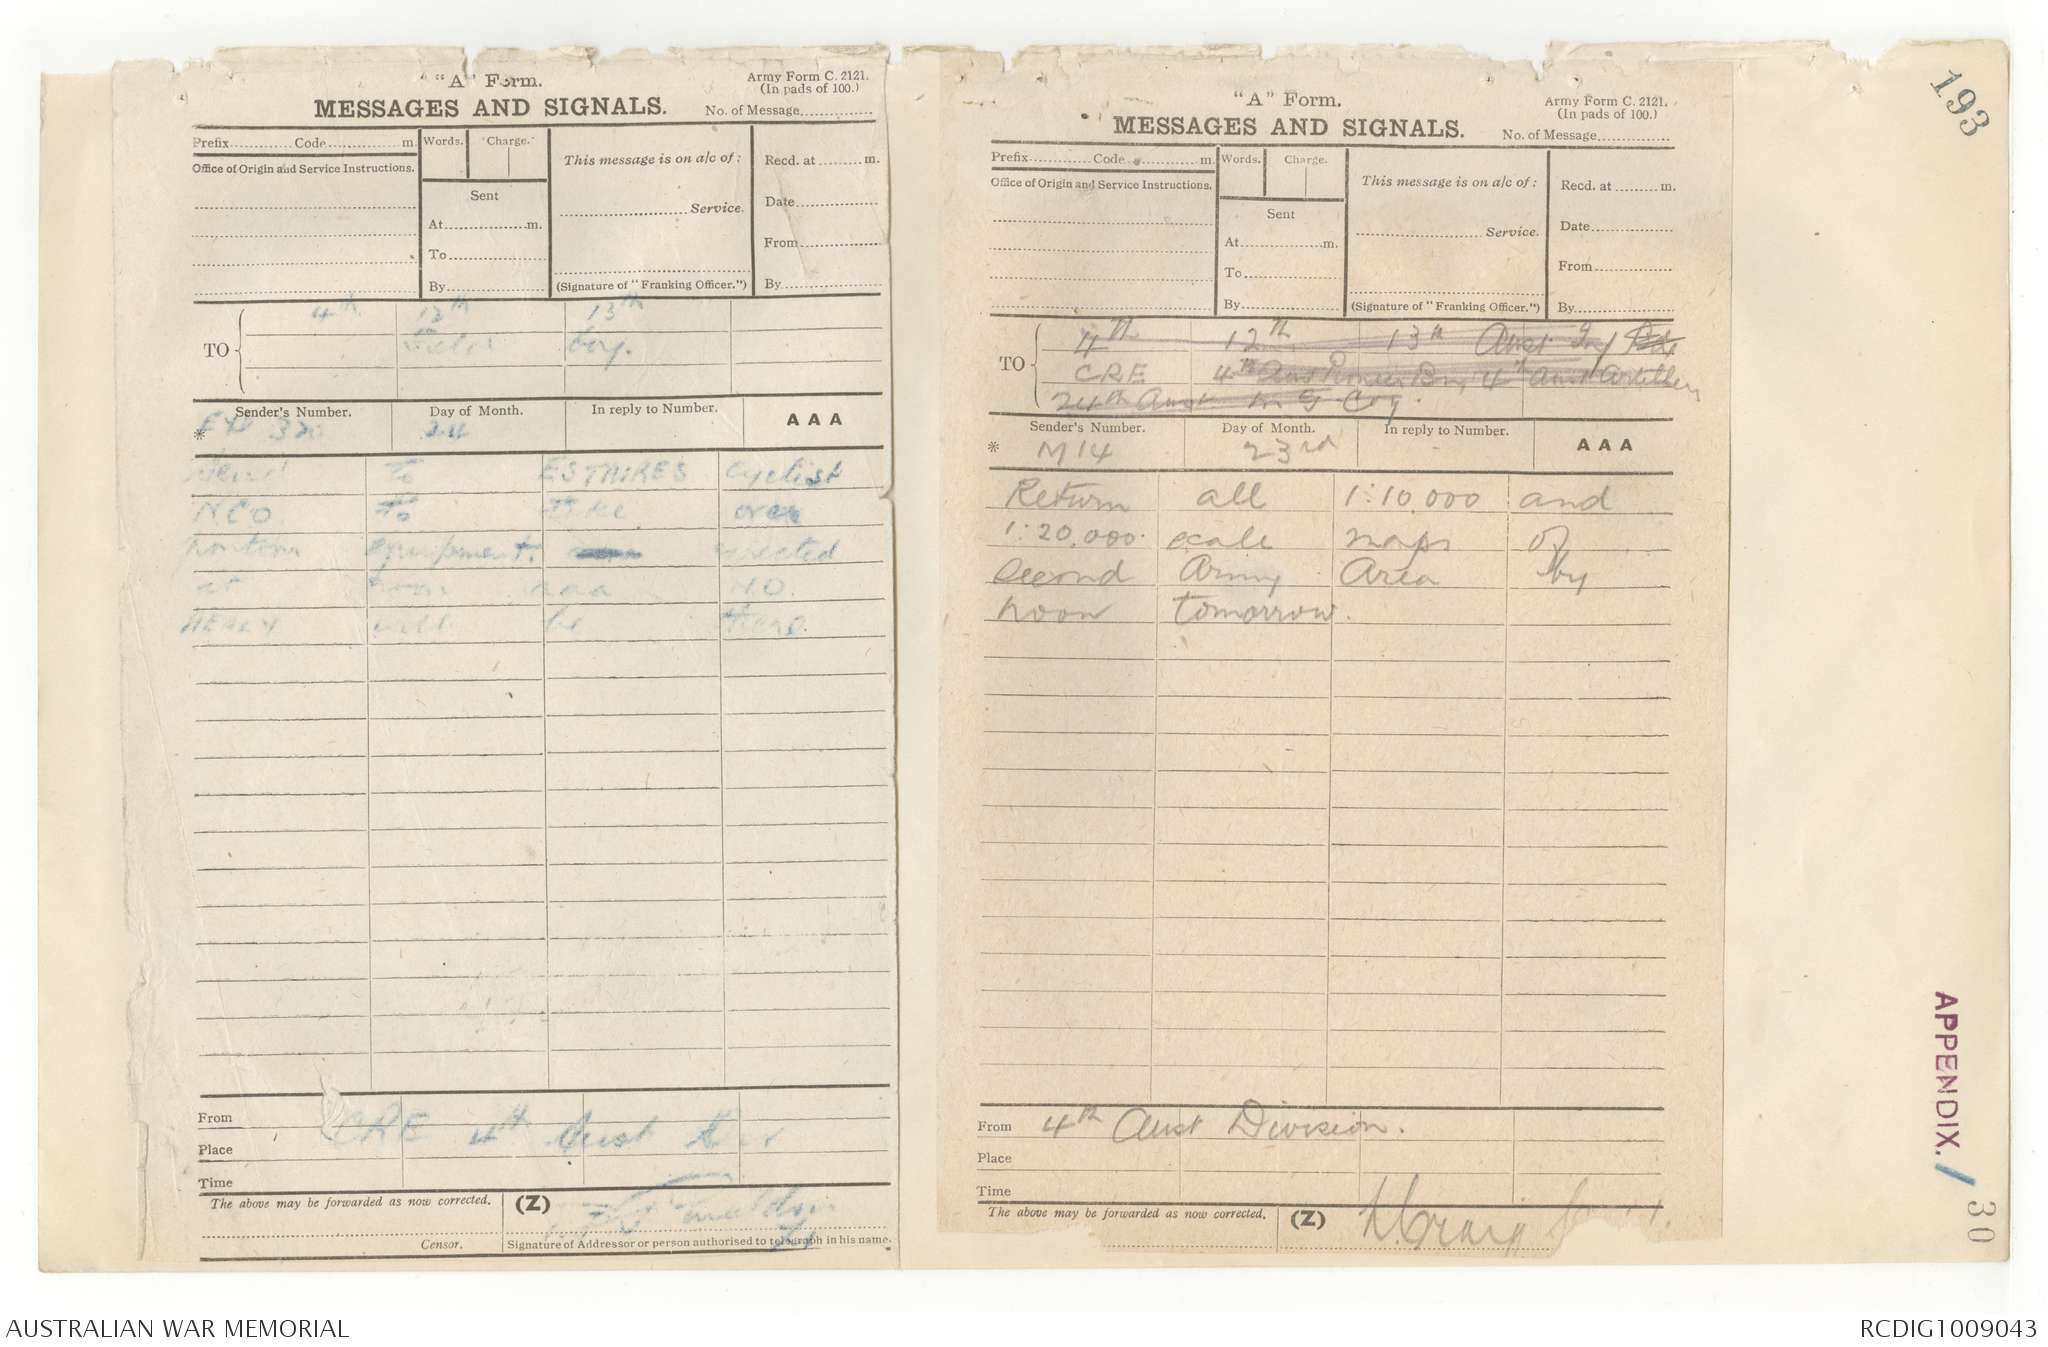 "A" Form.
Army Form C. 2121.
(In pads of 100.)
MESSAGES AND SIGNALS.
No. of Message
Prefix Code m.
Words. Charge.
This message is on a/c of:
Recd. at m.
Office of Origin and Service Instructions.
Sent
Service.
Date
At m.
From
To
By
(Signature of "Franking Officer.")
By
TO
4th 12th 13th
Field Coy.
Sender's Number. Day of Month. In reply to Number. AAA
* 320 24
Send to ESTAIRES cyclist
NCO to take over
pontoon equipment expected
at noon aaa
will be there.
From CRE 4th Aust
Place
Time
The above may be forwarded as now corrected. (Z)
Censor.
Signature of Addressor or person authorised to telegraph in his name.
"A" Form.
Army Form C. 2121.
(In pads of 100.)
MESSAGES AND SIGNALS.
No. of Message
Prefix Code m.
Words. Charge.
This message is on a/c of:
Recd. at m.
Office of Origin and Service Instructions.
Sent
Service.
Date
At m.
From
To
By
(Signature of "Franking Officer.")
By
TO
4th 12th 13th Aust Inf Bde
CRE 4th Aust Pioneer Bn, 4th Aust Artillery
24th Aust M G Coy.
Sender's Number. Day of Month. In reply to Number. AAA
* M14 23rd
Return all 1:10,000 and
1:20,000 scale maps of
Second Army Area by
noon tomorrow.
From 4th Aust Division.
Place
Time
The above may be forwarded as now corrected. (Z)
193
APPENDIX. /
30
AUSTRALIAN WAR MEMORIAL
RCDIG1009043